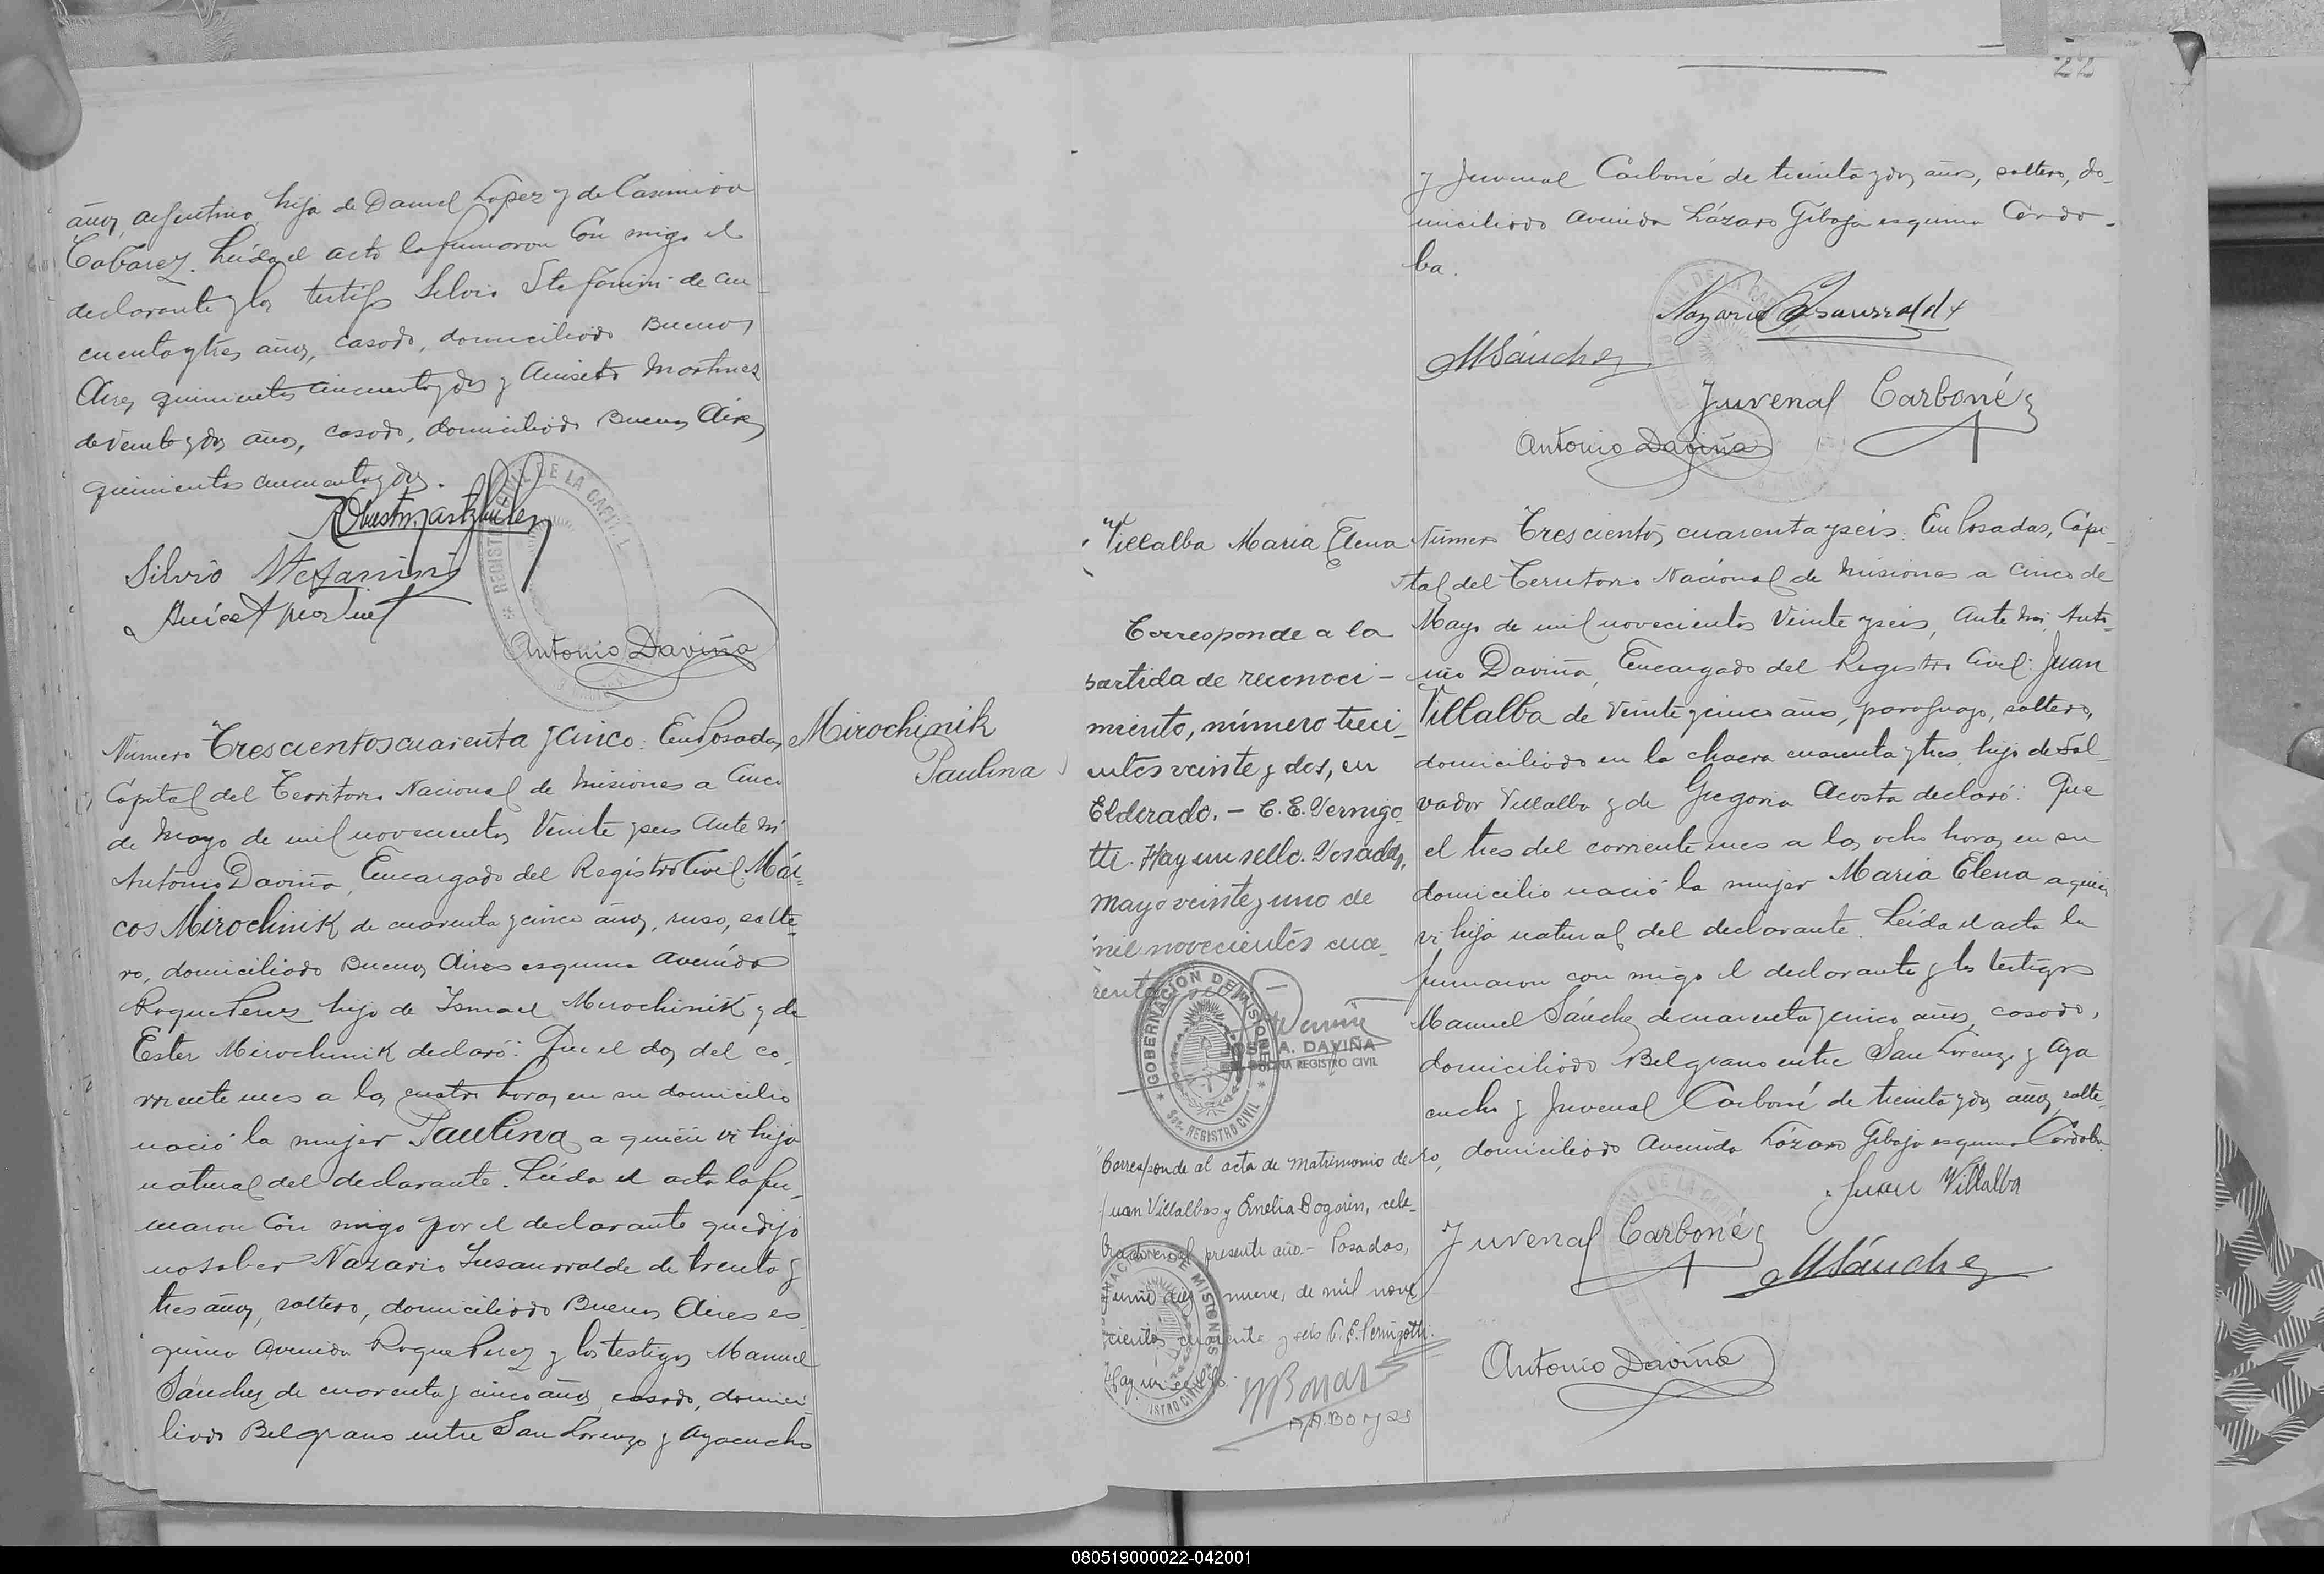 años, argentino, hija de Daniel Lopez y de Casimira
Cabarez. Leída el acta la firmaron con migo el
declarante y los testigs Silvio Stefanini de cin-
cuenta y tres años, casado, domiciliado Buenos
Aires quinientos cincuenta y dos y Aniseto Martinez
de veinte y dos años, casado, domiciliado Buenos Aires
quinientos cincuenta y dos.
REGISTRO CIVIL DE LA CAPITAL
Silvio Stefanini
Antonio Daviña
Mirochinik
Paulina
Número Trescientos cuarenta y cinco: En Posadas,
Capital del Territorio Nacional de Misiones a Cinco
de Mayo de mil novecientos Veinte y seis Ante mi
Antonio Daviña, Encargado del Registro Civil: Már-
cos Mirochinik de cuarenta y cinco años, ruso, solte-
ro, domiciliado Buenos Aires esquina Avenida
Roque Perez hijo de Ismael Mirochinik y de
Ester Mirochinik declaró: Que el dos del co-
rriente mes a las cuatro horas en su domicilio
nació la mujer Paulina a quien vi hija
natural del declarante. Leída el acta la fir-
maron con migo por el declarante que dijo
no saber Nazario Susaurralde de trenta y
tres años, soltero, domiciliado Buenos Aires es-
quina Avenida Roque Perez y los testigos Manuel
Sánchez de cuarenta y cinco años, casado, domici-
liado Belgrano entre San Lorenzo y Ayacucho
22
y Juvenal Carboné de treinta y dos años, soltero, do-
miciliado Avenida Lázaro Gibaja esquina Cordo-
ba.
MSánchez
Juvenal Carboné
Antonio Daviña
Villalba Maria Elena
Corresponde a la
partida de reconoci-
miento, número treci-
entos veinte y dos, en
Eldorado. - C. E. Pernigo-
tti. Hay un sello. Posadas,
mayo veinte y uno de
mil novecientos cua-
renta
GOBERNACION DE MISIONES
SEC. REGISTRO CIVIL
JOSE A. DAVIÑA
OFICINA REGISTRO CIVIL
"Corresponde al acta de matrimonio de
Juan Villalba y Ernelia Bogarin, cele-
brado en el presente año.- Posadas,
Junio diez nueve, de mil nove
cientos cuarenta y seis C. E. Pernigotti.
Hay un sello.-
A.A. Borjas
Número Trescientos cuarenta y seis: En Posadas, Capi-
tal del Territorio Nacional de Misiones a Cinco de
Mayo de mil novecientos Veinte y seis, Ante mi, Anto-
nio Daviña, Encargado del Registro Civil: Juan
Villalba de veinte y cinco años, paraguayo, soltero,
domiciliado en la chacra cuarenta y tres, hijo de Sal-
vador Villalba y de Gregoria Acosta declaró: Que
el tres del corriente mes a las ocho horas en su
domicilio nació la mujer Maria Elena a quien
vi hija natural del declarante. Leida el acta la
firmaron con migo el declarante y los testigos
Manuel Sánchez de cuarenta y cinco años, casado,
domiciliado Belgrano entre San Lorenzo y Aya
cucho y Juvenal Carboné de treinta y dos años, solte-
ro, domiciliado Avenida Lázaro Gibaja esquina Cordoba.
Juan Villalba
Juvenal Carboné
MSánchez
Antonio Daviña
080519000022-042001